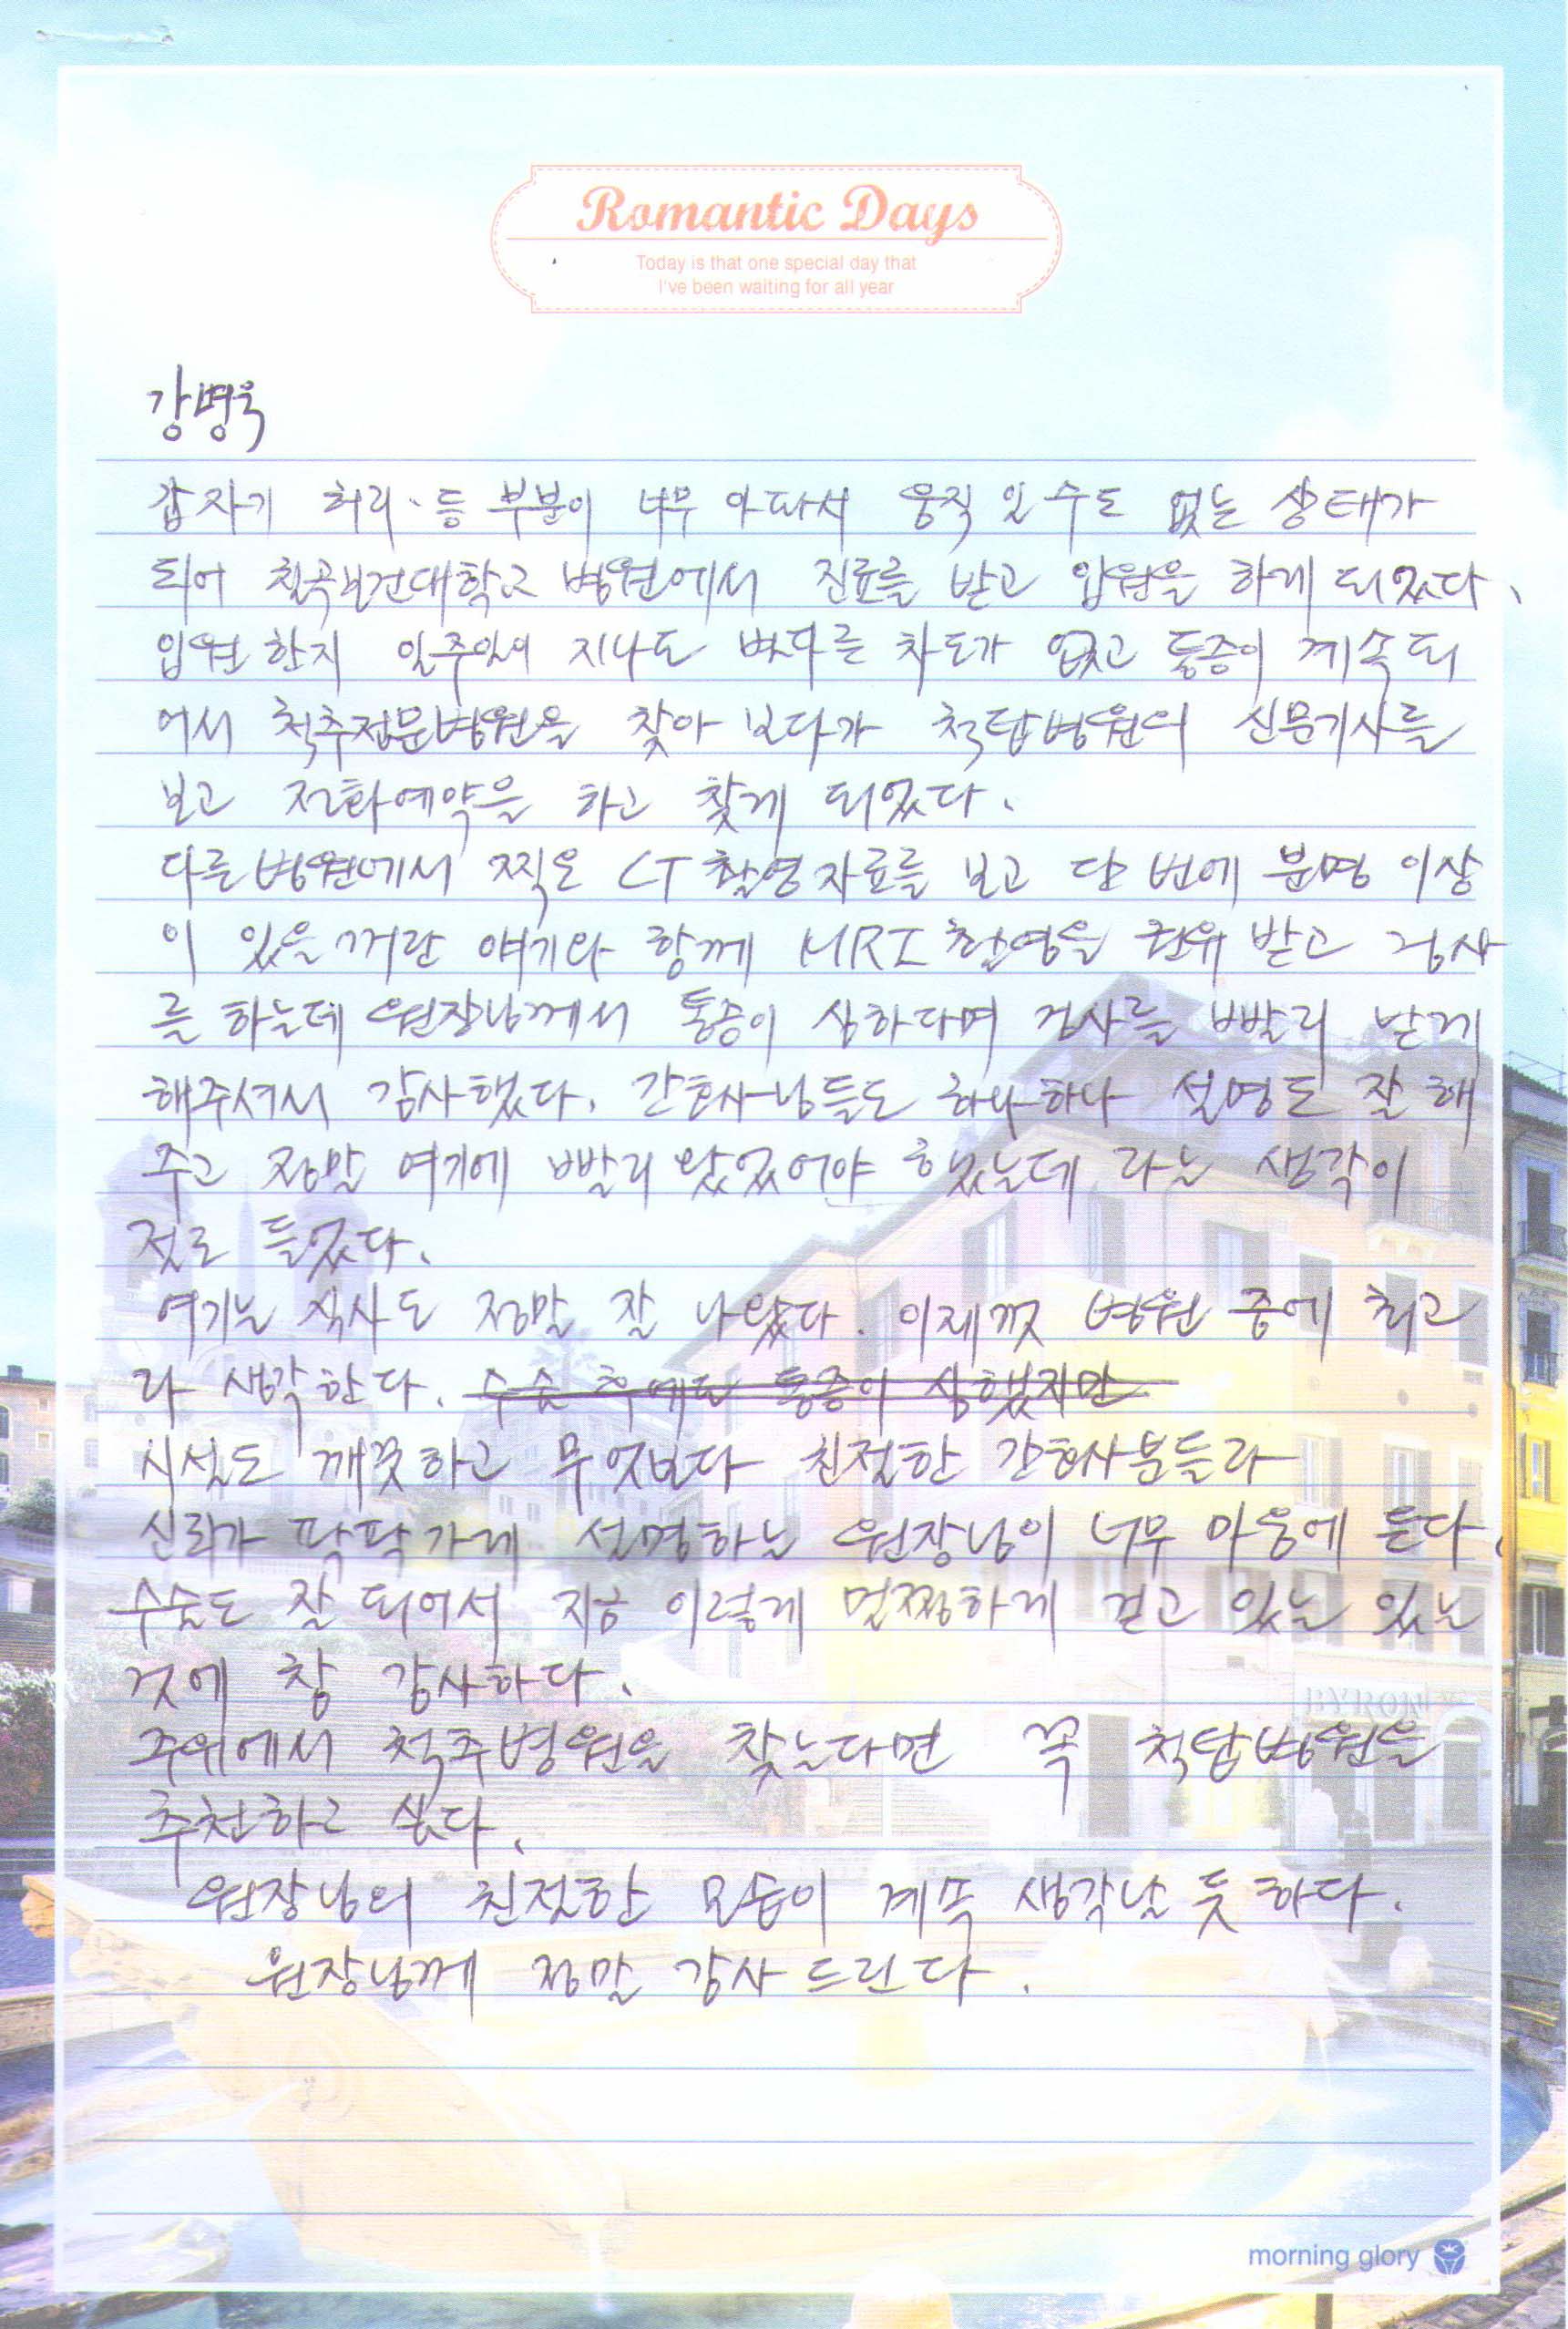 Romantic Days
Today is that one special day that
I've been waiting for all year
강명욱
갑자기 허리·등 부분이 너무 아파서 움직일 수도 없는 상태가
되어 칠곡보건대학교 병원에서 진료를 받고 입원을 하게 되었다.
입원한지 일주일이 지나도 별다른 차도가 없고 통증이 계속되
어서 척추전문병원을 찾아 보다가 척탑병원의 신문기사를
보고 전화예약을 하고 찾게 되었다.
다른병원에서 찍은 CT촬영자료를 보고 단번에 분명 이상
이 있을꺼란 얘기와 함께 MRI 촬영을 권유 받고 검사
를 하는데 원장님께서 통증이 심하다며 검사를 빨리 받게
해주셔서 감사했다. 간호사님들도 하나하나 설명도 잘 해
주고 정말 여기에 빨리 왔었어야 했는데 라는 생각이
절로 들었다.
여기는 식사도 정말 잘 나왔다. 이제껏 병원 중에 최고
라 생각한다. 수술 후에도 통증이 심했지만
시설도 깨끗하고 무엇보다 친절한 간호사분들과
신뢰가 팍팍가게 설명하는 원장님이 너무 마음에 든다.
수술도 잘 되어서 지금 이렇게 멀쩡하게 걷고 있는 있는
것에 참 감사하다.
주위에서 척추병원을 찾는다면 꼭 척탑병원을
추천하고 싶다.
원장님의 친절한 모습이 계속 생각날 듯 하다.
원장님께 정말 감사드린다.
morning glory